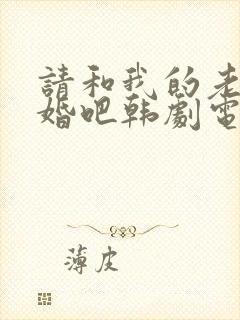 請和我的老
婚吧韩劇電
薄皮